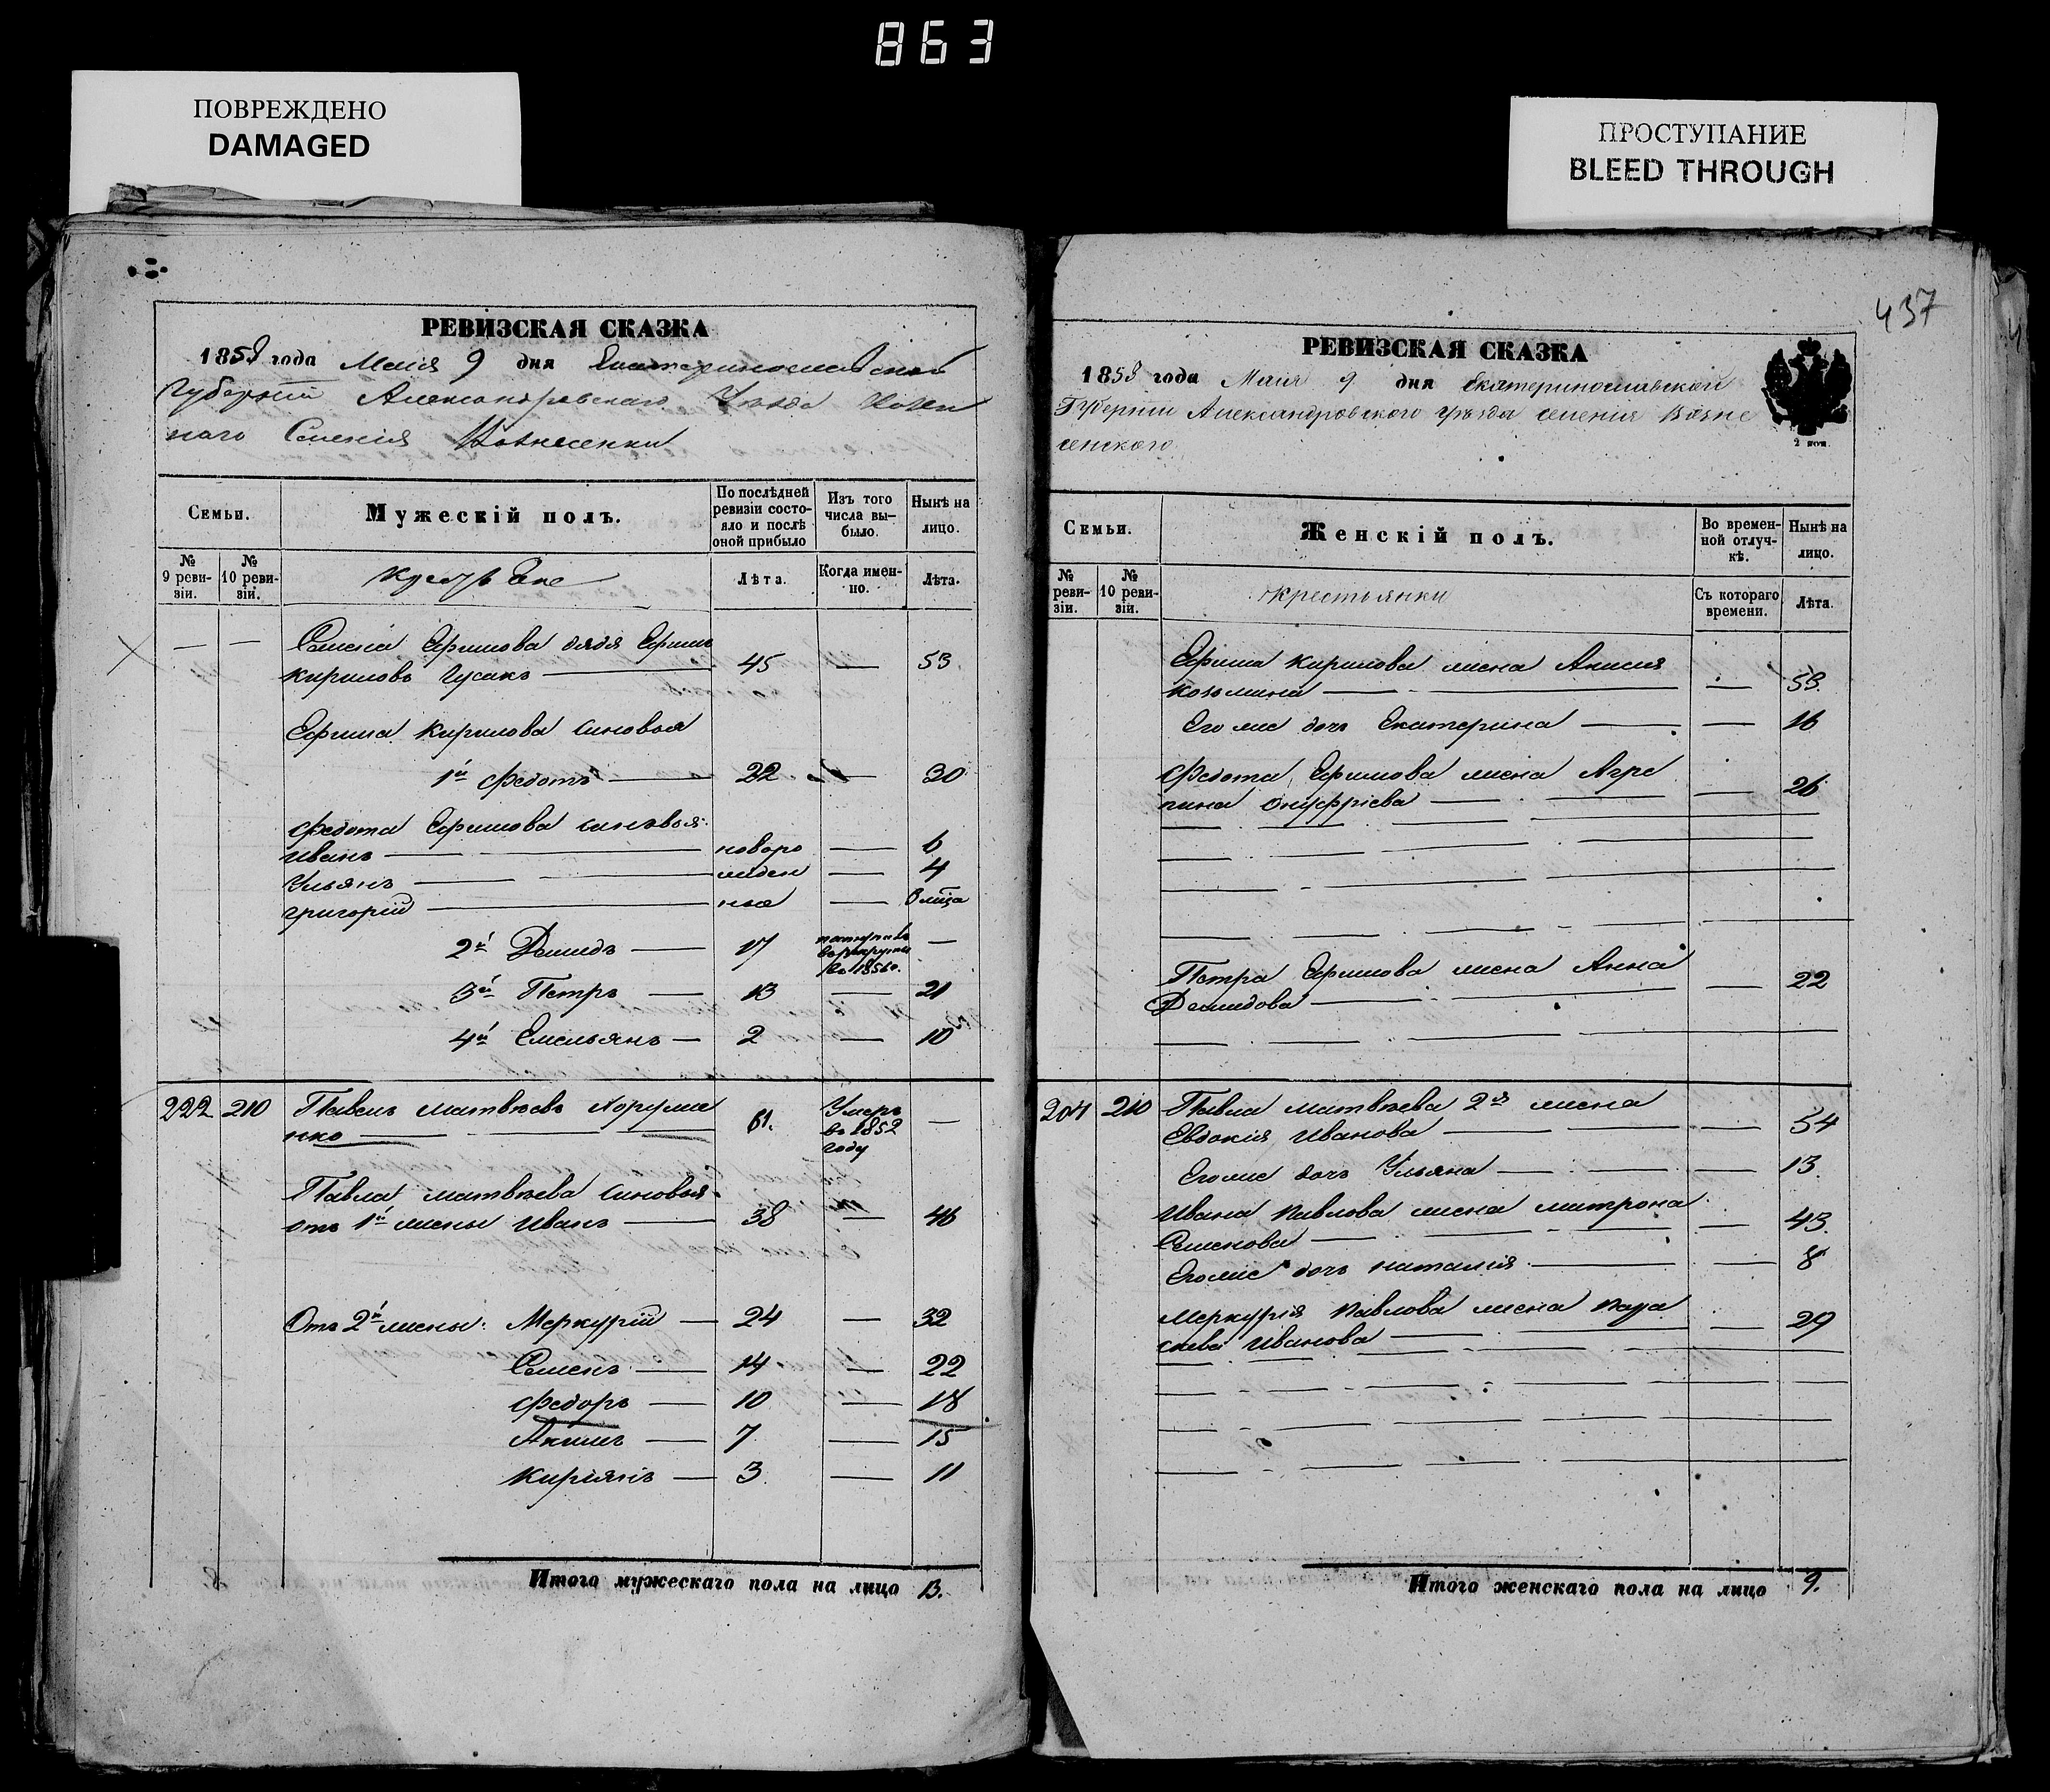 863
ПОВРЕЖДЕНО
DAMAGED
ПРОСТУПАНИЕ
BLEED THROUGH
РЕВИЗСКАЯ СКАЗКА
1858 года Маія 9 дня Екатеринославской
Губерніи Александровскаго Уѣзда
наго Селенія Вознесенки
Семьи.
Мужескій полъ.
По послѣдней ревизіи состояло и послѣ оной прибыло
Изъ того числа выбыло.
Нынѣ на лицо.
№ 9 ревизіи.
№ 10 ревизіи.
Лѣта.
Когда именно.
Лѣта.
— — Семена Ефимова дядя Ефимъ
Кириловъ Гусакъ — 45 — 53
Ефима Кирилова сыновья
1й Федотъ — 22 — 30
Федота Ефимова сыновья
Иванъ — новоро — 6
Ульянъ — жден — 4
Григорій — ные —
2й Демидъ — 17 поступилъ в рекруты в 1856 г. —
3й Петръ — 13 — 21
4й Емельянъ — 2 — 10
222 210 Павелъ Матвѣевъ Хорума
нко — 61. Умеръ въ 1852 году —
Павла Матвѣева сыновья
отъ 1й жены Иванъ — 38 — 46
Отъ 2й жены: Меркурій — 24 — 32
Семенъ — 14 — 22
Федоръ — 10 — 18
Акимъ — 7 — 15
Киріянъ — 3 — 11
Итого мужескаго пола на лицо 13.
437
РЕВИЗСКАЯ СКАЗКА
1858 года Маія 9 дня Екатеринославской
Губерніи Александровского уѣзда селенія Возне
сенского
2 коп.
Семьи.
Женскій полъ.
Во временной отлучкѣ.
Нынѣ на лицо.
№ ревизіи.
№ 10 ревизіи.
крестьянки
Съ котораго времени.
Лѣта.
Ефима Кирилова жена Анисия
Козьмина — — 53.
Его же дочь Екатерина — — 16
Федота Ефимова жена Агре
пина Онуфріева — — 26
Петра Ефимова жена Анна
Демидова — — 22
204 210 Павла Матвѣева 2я жена
Евдокія Иванова — — 54
Его же дочь Ульяна — — 13.
Ивана Павлова жена Матрона
Семенова — — 43.
Его же дочь Наталія — — 8
Меркурія Павлова жена Пара
скева Иванова — — 29
Итого женскаго пола на лицо 9.